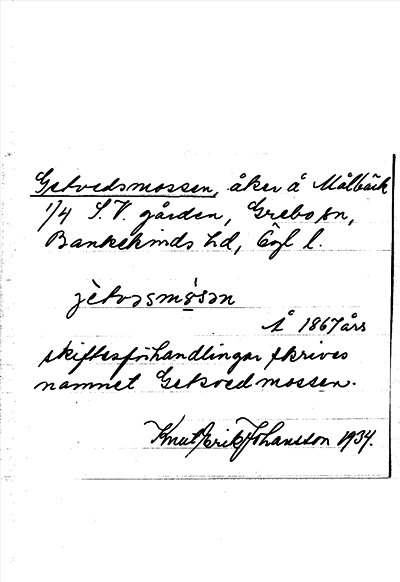 Getvedsmossen, åker å Målbäck
1/4 S.V. gården, Grebo sn,
Bankekinds hd, Ögl l.
jètvəsmósən
Å 1867 års
skiftesförhandlingar skrives
namnet Getsvedmossen.
Knut Erik Johansson 1934.